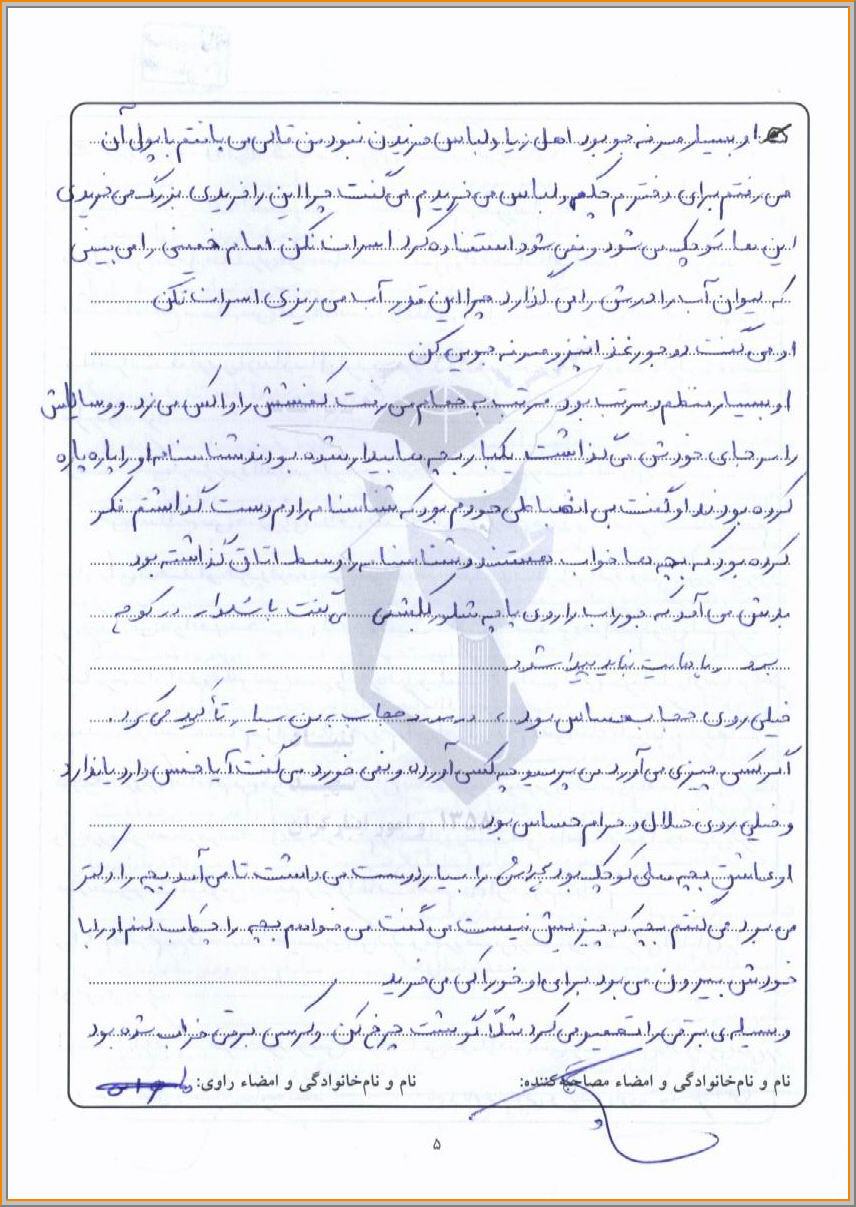 او بسیار صرفه جو بود اهل زیاد لباس خریدن نبود من قالی می بافتم با پول آن
می رفتم برای دخترم چکمه و لباس می خریدم می گفت چرا این را خریدی بزرگ می خریدی
این ها کوچک می شود و نمی شود استفاده کرد اسراف نکن امام خمینی را می بینی
که لیوان آب را درش را می گذارد چرا این قدر آب می ریزی اسراف نکن
او می گفت دو جور غذا نپز و صرفه جویی کن
او بسیار منظم و مرتب بود مرتب به حمام می رفت کفشش را واکس می زد و وسایلش
را سر جای خودش می گذاشت یکبار بچه ها بیدار شده بودند شناسنامه او را پاره پاره
کرده بودند او گفت بی انضباطی خودم بود که شناسنامه را دم دست گذاشتم فکر
کرده بود که بچه ها خواب هستند و شناسنامه را وسط اتاق گذاشته بود
بدش می آمد که جوراب را روی پاچه شلوار بکشی می گفت با شلوار در کوچه
نباید پیدا شود
خیلی روی حجاب حساس بود، در مورد حجاب به من بسیار تأکید می کرد.
اگر کسی چیزی می آورد می پرسید چه کسی آورده و نمی خورد می گفت آیا خمس دارد یا ندارد
و خیلی روی حلال و حرام حساس بود
او عاشق بچه های کوچک بود را بسیار دوست می داشت تا می آمد بچه را دکتر
می برد می گفتم بچه که چیزیش نیست می گفت می خواهم بچه را چکاپ کنم او را با
خودش بیرون می برد برای او خوراکی می خرید
وسیله ی برقی را تعمیر می کرد مثلا گوشت چرخ کن و کرسی برقی خراب شده بود
نام و نام‌خانوادگی و امضاء مصاحبه‌کننده: نام و نام‌خانوادگی و امضاء راوی:
۵